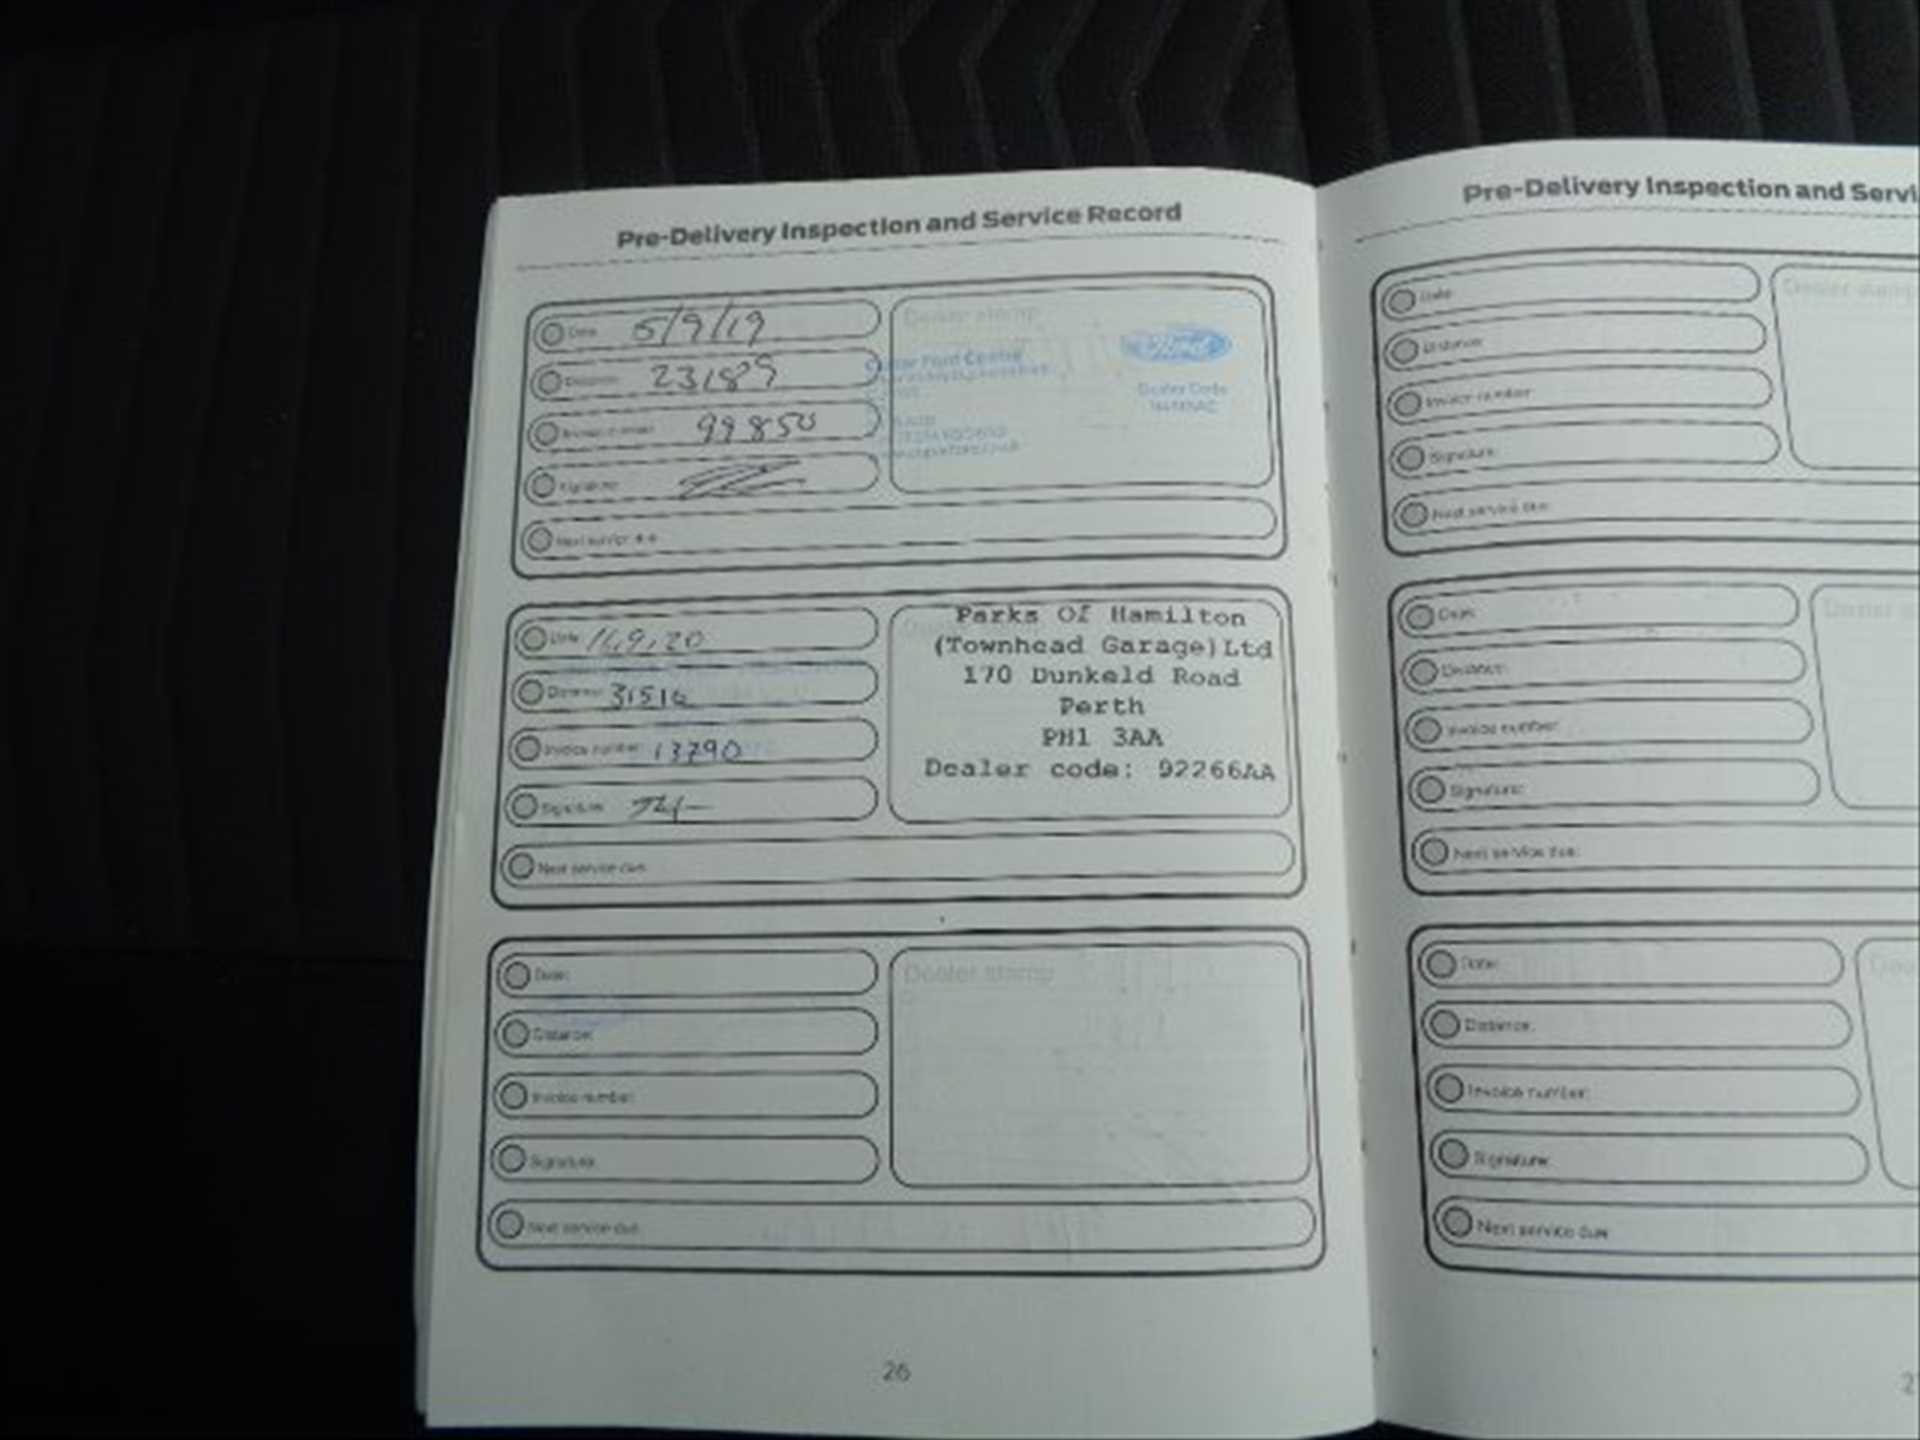 Pre-Delivery Inspection and Service Record
Date: 5/9/19
Distance: 23189
Invoice number: 99850
Signature:
Next service due:
Dealer stamp
Ford Centre
Ford
Dealer Code
Date: 16,9,20
Distance: 31516
Invoice number: 13790
Signature:
Next service due:
Parks Of Hamilton
(Townhead Garage)Ltd
170 Dunkeld Road
Perth
PH1 3AA
Dealer code: 92266AA
Date:
Distance:
Invoice number:
Signature:
Next service due:
Dealer stamp
26
Pre-Delivery Inspection and Servi
Date:
Distance:
Invoice number:
Signature:
Next service due:
Dealer stamp
Date:
Distance:
Invoice number:
Signature:
Next service due:
Dealer
Date:
Distance:
Invoice number:
Signature:
Next service due:
Dea
2